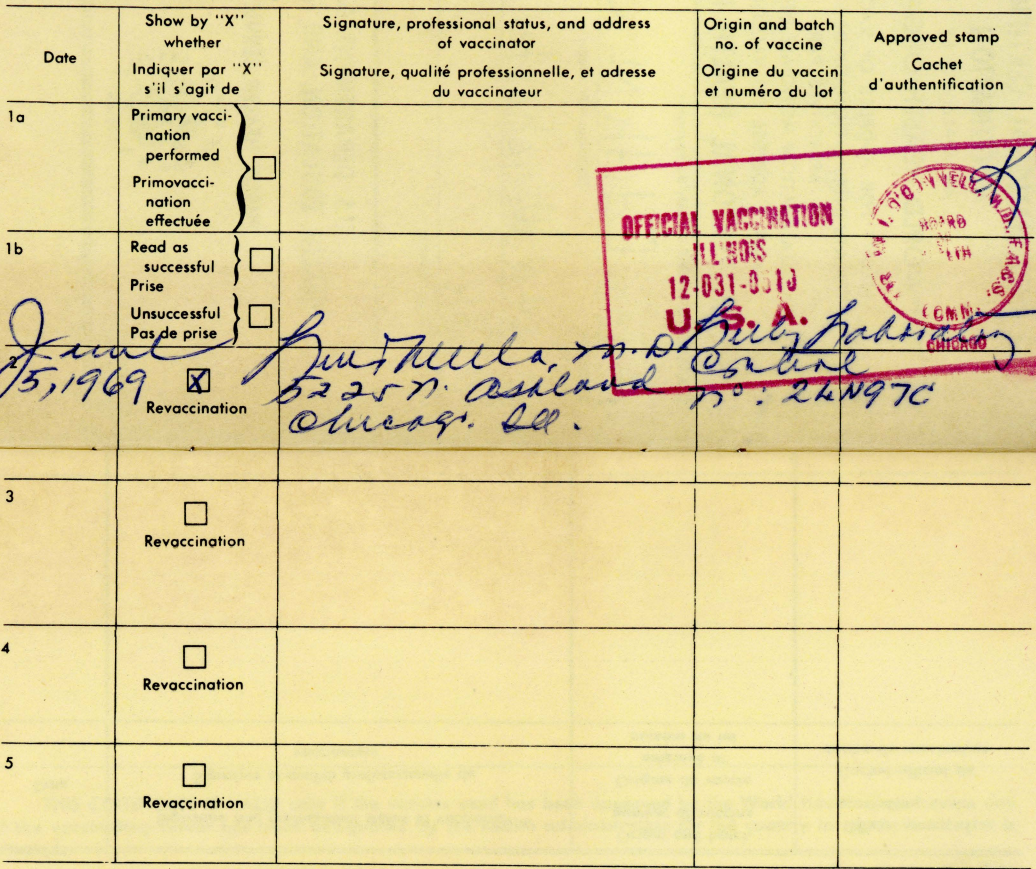 Date
Show by "X"
whether
Indiquer par "X"
s'il s'agit de
Signature, professional status, and address
of vaccinator
Signature, qualité professionnelle, et adresse
du vaccinateur
Origin and batch
no. of vaccine
Origine du vaccin
et numéro du lot
Approved stamp
Cachet
d'authentification
1a
Primary vacci-
nation
performed
Primovacci-
nation
effectuée
1b
Read as
successful
Prise
Unsuccessful
Pas de prise
OFFICIAL VACCINATION
ILLINOIS
U.S.A.
O'CONNELL, M.D. F.A.C.S.
BOARD
COMM.
CHICAGO
1969
X
Revaccination
M.D.
5225 N. Ashland
Chicago. Ill.
no: 24N97C
3
Revaccination
4
Revaccination
5
Revaccination